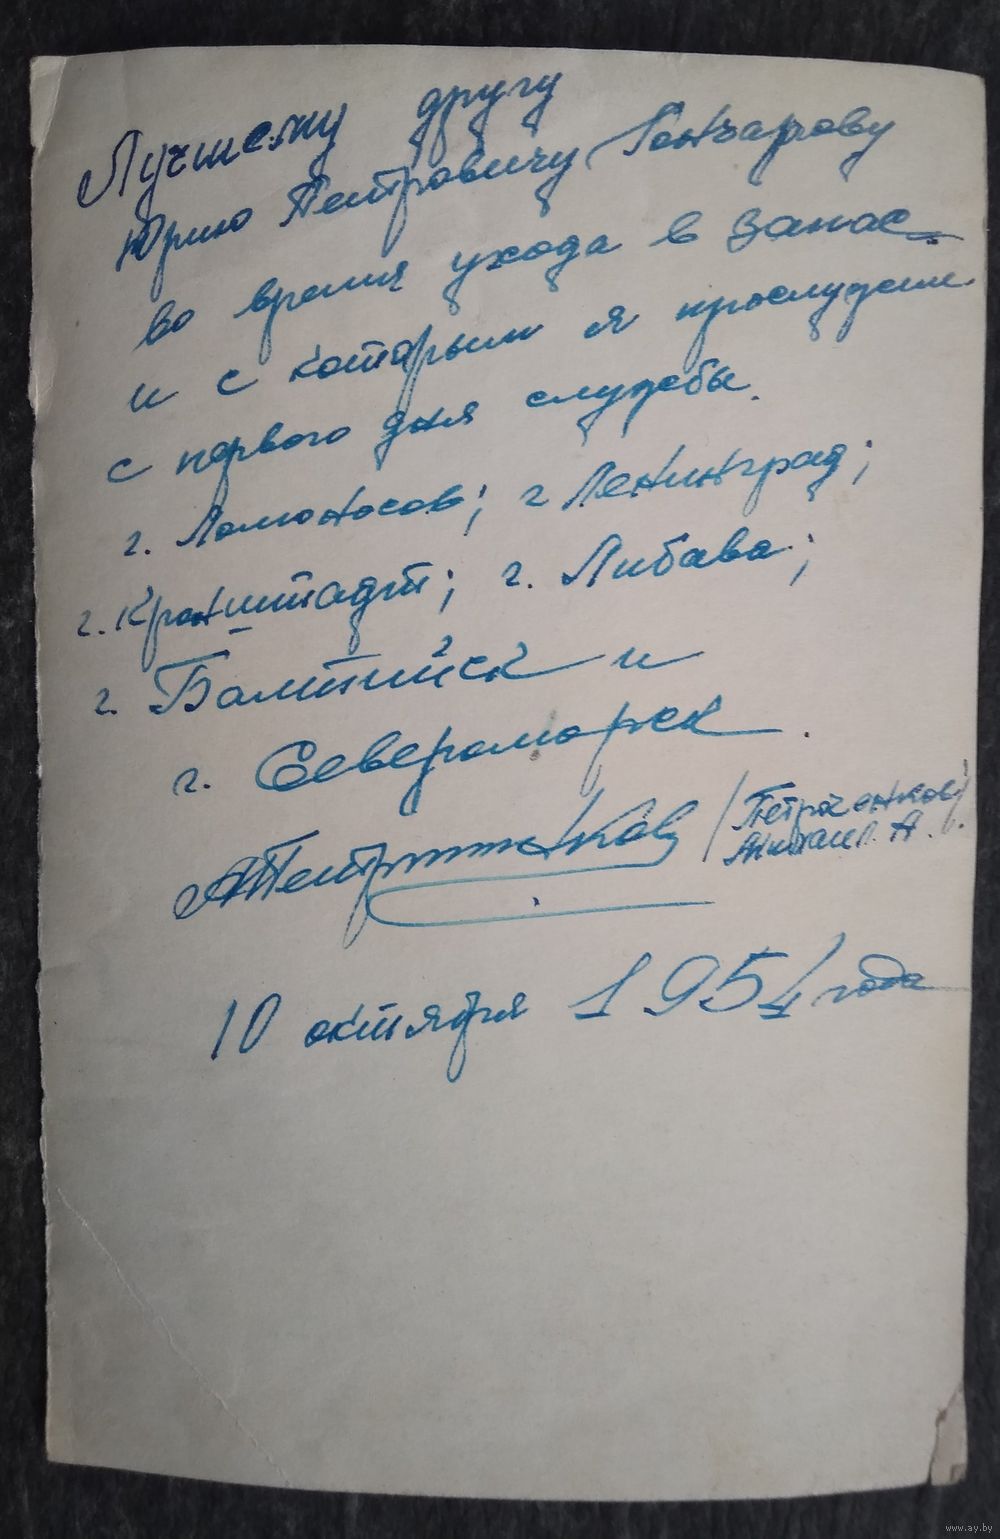 Лучшему другу
Юрию Петровичу Гончарову
во время ухода в запас
и с которым я прослужил
с первого дня службы.
г. Ломоносов; г Ленинград;
г. Кронштадт; г. Либава;
г. Балтийск и
г. Североморск.
10 октября 1954 года
www.ay.by